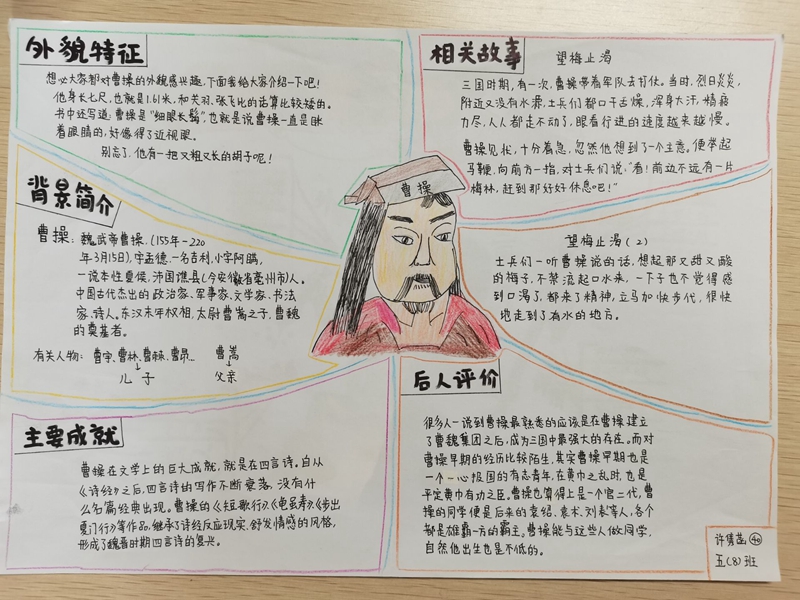 外貌特征
想必大家都对曹操的外貌感兴趣，下面我给大家介绍一下吧！
他身长七尺，也就是1.61米，和关羽、张飞比的话算比较矮的。
书中还写道：曹操是“细眼长髯”，也就是说曹操一直是眯
着眼睛的，好像得了近视眼。
别忘了，他有一把又粗又长的胡子呢！
背景简介
曹操：魏武帝曹操，（155年-220
年3月15日），字孟德，一名吉利，小字阿瞒，
一说本性夏侯，沛国谯县（今安徽省亳州市）人。
中国古代杰出的政治家、军事家、文学家、书法
家、诗人。东汉末年权相，太尉曹嵩之子，曹魏
的奠基者。
有关人物：曹宇、曹林、曹昂… 曹嵩
儿子 父亲
主要成就
曹操在文学上的巨大成就，就是在四言诗。自从
《诗经》之后，四言诗的写作不断衰落，没有什
么名篇经典出现。曹操的《短歌行》、《龟虽寿》、《步出
夏门行》等作品，继承了诗经反应现实，舒发情感的风格，
形成了魏晋时期四言诗的复兴。
曹操
相关故事 望梅止渴
三国时期，有一次，曹操带着军队去打仗。当时，烈日炎炎，
附近又没有水源，士兵们都口干舌燥，浑身大汗，精疲
力尽，人人都走不动了，眼看行进的速度越来越慢。
曹操见状，十分着急，忽然他想到了一个主意。便举起
马鞭，向前方一指，对士兵们说：“看！前边不远有一片
梅林，赶到那好好休息吧！”
望梅止渴（2）
士兵们一听曹操说的话，想起那又甜又酸
的梅子，不禁流起口水来，一下子也不觉得感
到口渴了，都来了精神，立马加快步伐，很快
地走到了有水的地方。
后人评价
很多人一说到曹操最熟悉的应该是在曹操建立
了曹魏集团之后，成为三国中最强大的存在。而对
曹操早期的经历比较陌生，其实曹操早期也是
一个一心报国的有志青年，在黄巾之乱时，也是
平定黄巾有功之臣。曹操也算得上是一个官二代，曹
操的同学便是后来的袁绍、袁术、刘表等人，各个
都是雄霸一方的霸主。曹操能与这些人做同学，
自然他出生也是不低的。
40
五（8）班